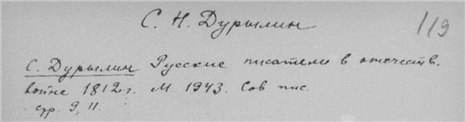 С. Н. Дурылин
119
С. Дурылин Русские писатели в отечеств.
войне 1812 г. М 1943. Сов пис.
стр. 9, 11.